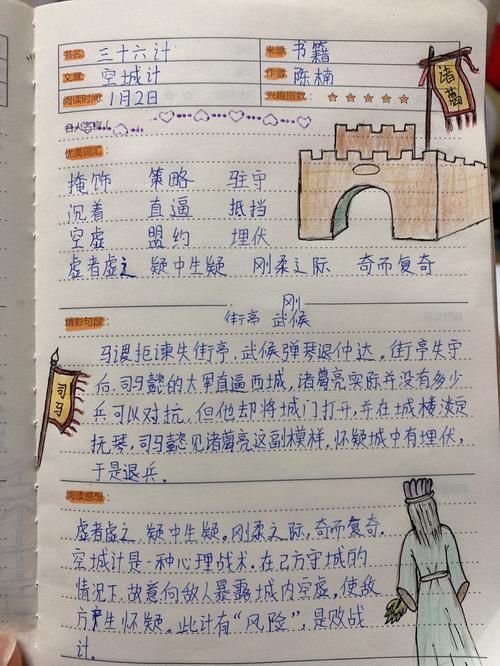 书名 三十六计 来源 书籍
文章 空城计 作者 陈楠
阅读时间 1月2日 兴趣指数
诸葛
优美词汇
掩饰 策略 驻守
沉着 直逼 抵挡
空虚 盟约 埋伏
虚者虚之 疑中生疑 刚柔之际 奇而复奇
刚
精彩句段 街亭 武候
司马
马谡拒谏失街亭，武候弹琴退仲达。街亭失守
后，司马懿的大军直逼西城，诸葛亮实际并没有多少
兵可以对抗，但他却将城门打开，并在城楼淡定
抚琴，司马懿见诸葛亮这副模样，怀疑城中有埋伏，
于是退兵。
阅读感想
虚者虚之，疑中生疑。刚柔之际，奇而复奇。
空城计是一种心理战术。在己方守城的
情况下，故意向敌人暴露城内空虚，使敌
方产生怀疑。此计有“风险”，是败战
计．